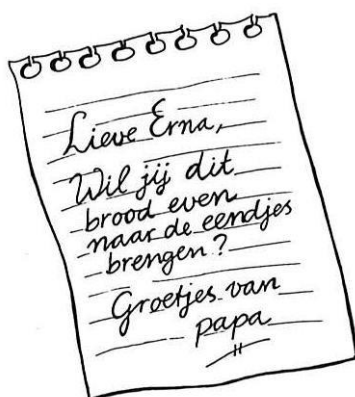 Lieve Erna,
Wil jij dit
brood even
naar de eendjes
brengen?
Groetjes van
papa